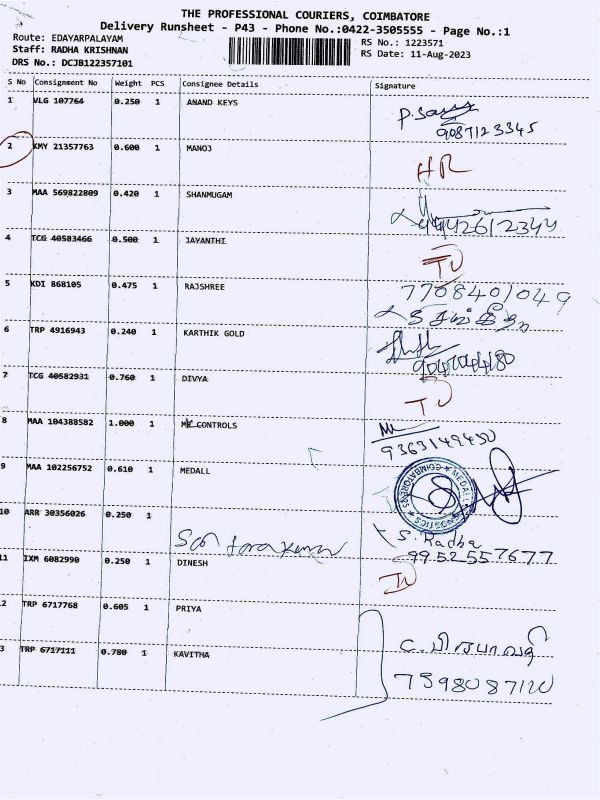 THE PROFESSIONAL COURIERS, COIMBATORE
Delivery Runsheet - P43 - Phone No.:0422-3505555 - Page No.:1
Route: EDAYARPALAYAM RS No.: 1223571
Staff: RADHA KRISHNAN RS Date: 11-Aug-2023
DRS No.: DCJB122357101
S No Consignment No Weight PCS Consignee Details Signature
1 VLG 107764 0.250 1 ANAND KEYS
9087123345
2 KMY 21357763 0.600 1 MANOJ HR
3 MAA 569822809 0.420 1 SHANMUGAM
9442612344
4 TCG 40583466 0.500 1 JAYANTHI
5 KDI 868105 0.475 1 RAJSHREE 7708401049
6 TRP 4916943 0.240 1 KARTHIK GOLD
7 TCG 40582931 0.760 1 DIVYA
8 MAA 104388582 1.000 1 CONTROLS
9363149450
9 MAA 102256752 0.610 1 MEDALL
10 ARR 30356026 0.250 1
S. Radha
9952557677
11 IXM 6082990 0.250 1 DINESH
2 TRP 6717768 0.605 1 PRIYA
3 TRP 6717111 0.780 1 KAVITHA
7598087120